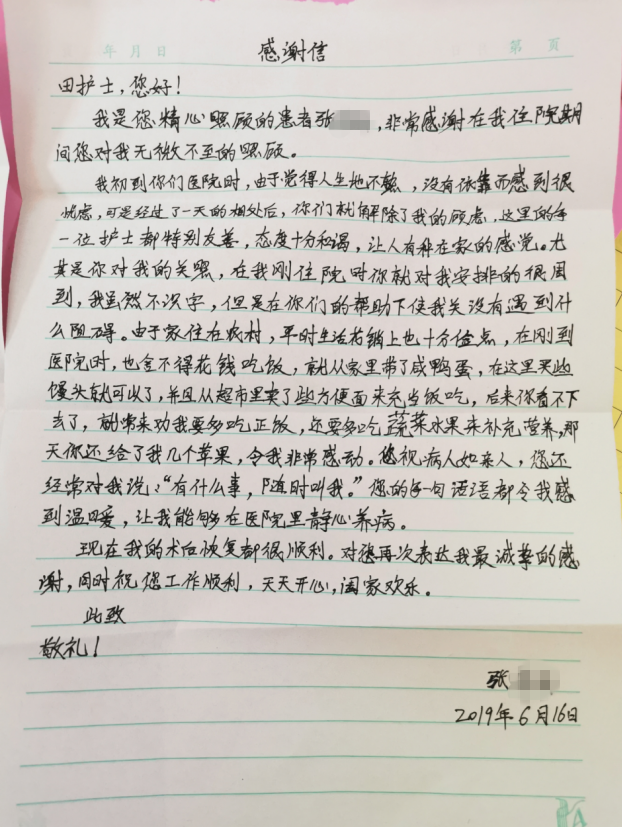 年 月 日
第 页
感谢信
田护士，您好！
我是您精心照顾的患者张，非常感谢在我住院期
间您对我无微不至的照顾。
我初到你们医院时，由于觉得人生地不熟，没有依靠而感到很
忧虑，可是经过了一天的相处后，你们就解除了我的顾虑，这里的每
一位护士都特别友善，态度十分和谒，让人有种在家的感觉。尤
其是你对我的关照，在我刚住院时你就对我安排的很周
到，我虽然不识字，但是在你们的帮助下使我关没有遇到什
么阻碍。由于家住在农村，平时生活花销上也十分俭点，在刚到
医院时，也舍不得花钱吃饭，就从家里带了咸鸭蛋，在这里买些
馒头就可以了，并且从超市里卖了些方便面来充当饭吃，后来你看不下
去了，就常来劝我要多吃正饭，还要多吃蔬菜水果来补充营养，那
天你还给了我几个苹果，令我非常感动。您视病人如亲人，您还
经常对我说：“有什么事，随时叫我。”您的每一句话语都令我感
到温暖，让我能够在医院里静心养病。
现在我的术后恢复都很顺利。对您再次表达我最诚挚的感
谢，同时祝您工作顺利，天天开心，阖家欢乐。
此致
敬礼！
张
2019年6月16日